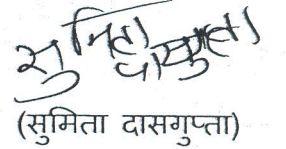 सुमिता
दासगुप्ता
(सुमिता दासगुप्ता)